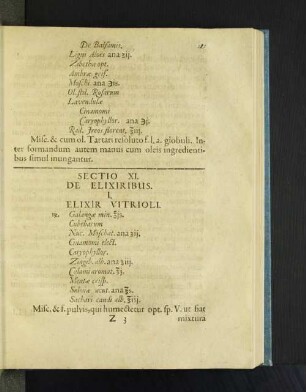 De Balsamis.
Ligni Aloës ana ʒij.
Zibethi opt.
Ambræ gris.
Moschi ana ℈is.
Ol. stil. Rosarum
Lavendulæ
Cinamomi
Caryophyllor. ana ℈j.
Rad. Ireos florent. ℥iij.
Misc. & cum ol. Tartari resoluto f. l. a. globuli. In-
ter formandum autem manus cum oleis ingredienti-
bus simul inungantur.
SECTIO XI.
DE ELIXIRIBUS.
I.
ELIXIR VITRIOLI.
℞. Galangæ min. ℥js.
Cubebarum
Nuc. Moschat. ana ʒiij.
Cinamomi elect.
Caryophyllor.
Zingib. alb. ana ʒiij.
Calami aromat. ℥j.
Mentæ crisp.
Salviæ acut. ana ℥s.
Sachari candi alb. ℥iij.
Misc. & f. pulvis, qui humectetur opt. sp. V. ut fiat
Z 3 mixtura